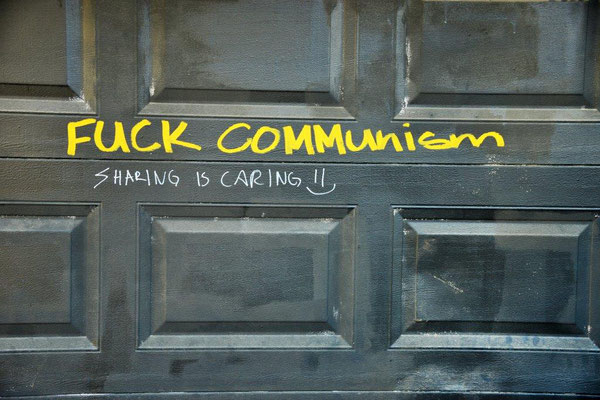 FUCK COMMUNISM
SHARING IS CARING !!